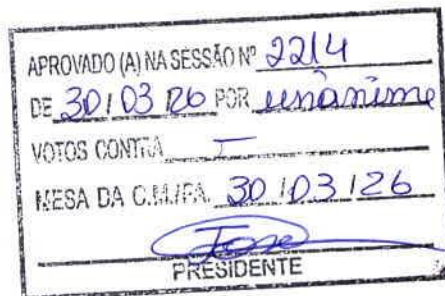 APROVADO (A) NA SESSÃO Nº 2214
DE 30/03/26 POR unânime
VOTOS CONTRA -
MESA DA C.M./PA, 30/03/26
PRESIDENTE